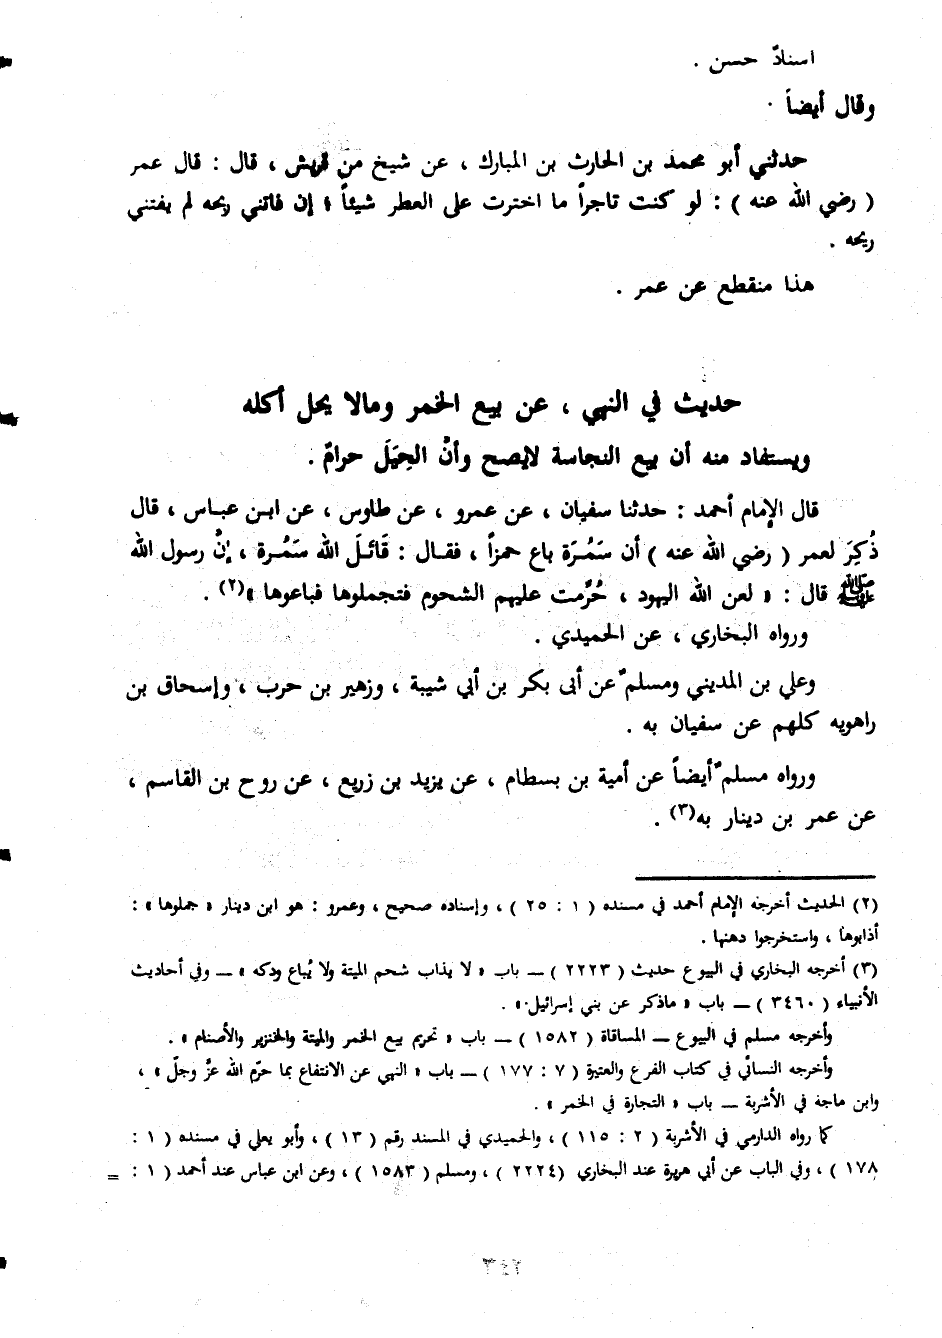 اسنادٌ حسن .
وقال أيضاً .
حدثني أبو محمد بن الحارث بن المبارك ، عن شيخ من قريش ، قال : قال عمر
( رضي الله عنه ) : لو كنت تاجراً ما اخترت على العطر شيئاً ؛ إن فاتني ربحه لم يفتني
ريحه .
هذا منقطع عن عمر .
حديث في النهي ، عن بيع الخمر ومالا يحل أكله
ويستفاد منه أن بيع النجاسة لايصح وأنَّ الحِيَلَ حرامٌ .
قال الإمام أحمد : حدثنا سفيان ، عن عمرو ، عن طاوس ، عن ابن عباس ، قال
ذُكِرَ لعمر ( رضي الله عنه ) أن سَمُرَة باع خمزاً ، فقال : قَاتَلَ الله سَمُرة ، إنَّ رسول الله
ﷺ قال : « لعن الله اليهود ، حُرِّمت عليهم الشحوم فتجملوها فباعوها »(٢) .
ورواه البخاري ، عن الحميدي .
وعلي بن المديني ومسلمٌ عن أبى بكر بن أبي شيبة ، وزهير بن حرب ، وإسحاق بن
راهويه كلهم عن سفيان به .
ورواه مسلمٌ أيضاً عن أمية بن بسطام ، عن يزيد بن زريع ، عن روح بن القاسم ،
عن عمر بن دينار به(٣) .
(٢) الحديث أخرجه الإمام أحمد في مسنده ( ١ : ٢٥ ) ، وإسناده صحيح ، وعمرو : هو ابن دينار « جملوها » :
أذابوها ، واستخرجوا دهنها .
(٣) أخرجه البخاري في البيوع حديث ( ٢٢٢٣ ) — باب « لا يذاب شحم الميتة ولا يُباع ودكه » — وفي أحاديث
الأنبياء ( ٣٤٦٠ ) — باب « ماذكر عن بني إسرائيل » .
وأخرجه مسلم في البيوع — المساقاة ( ١٥٨٢ ) — باب « تحريم بيع الخمر والميتة والخنزير والأصنام » .
وأخرجه النسائي في كتاب الفرع والعتيرة ( ٧ : ١٧٧ ) — باب « النهي عن الانتفاع بما حرّم الله عزَّ وجلّ » ،
وابن ماجة في الأشربة — باب « التجارة في الخمر » .
كما رواه الدارمي في الأشربة ( ٢ : ١١٥ ) ، والحميدي في المسند رقم ( ١٣ ) ، وأبو يعلي في مسنده ( ١ :
١٧٨ ) ، وفي الباب عن أبي هريرة عند البخاري ( ٢٢٢٤ ) ، ومسلم ( ١٥٨٣ ) ، وعن ابن عباس عند أحمد ( ١ : =
٣٤٢